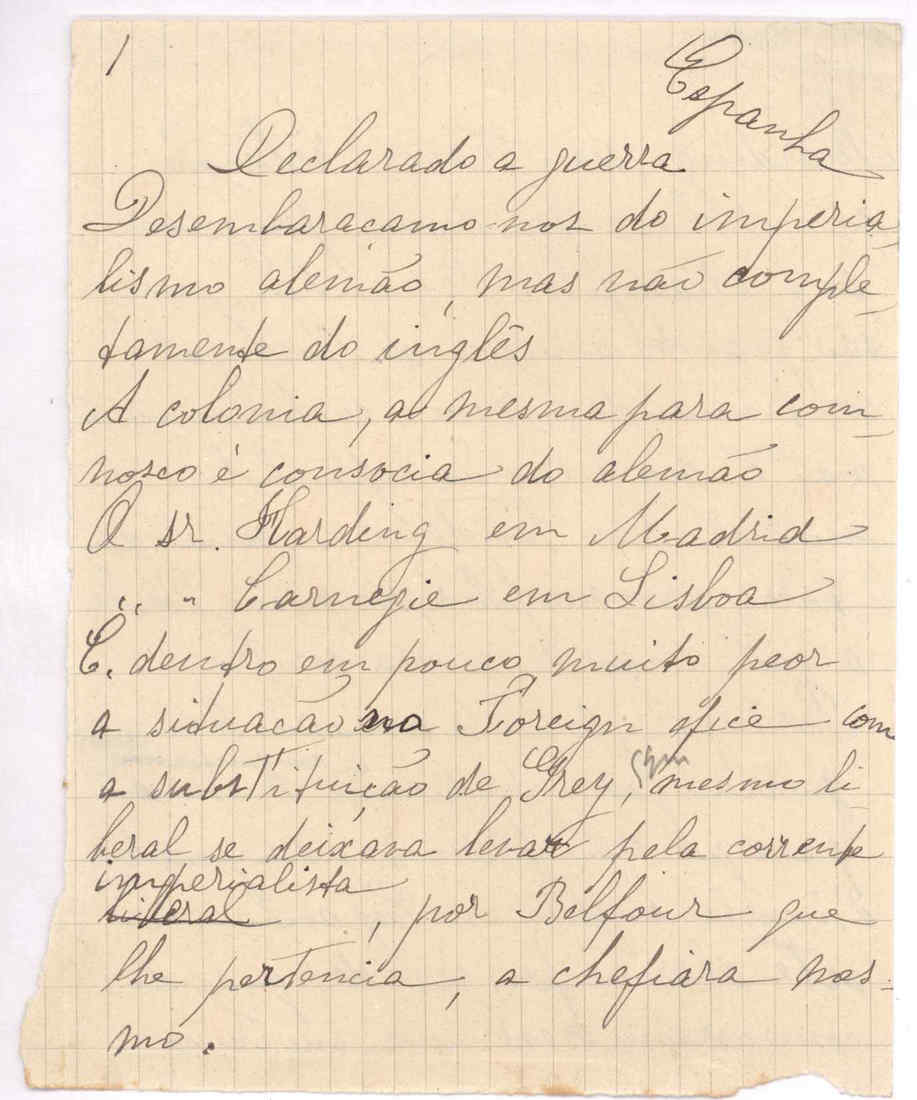 1
Espanha
Declarado a guerra
Desembaracamo-nos do imperia-
lismo alemão, mas não comple-
tamente do inglês
A colonia, a mesma para com-
nosco é consocia do alemão
O sr. Harding em Madrid
" " Carnegie em Lisboa
E. dentro em pouco, muito peor
a situacão na Foreign ofice com
a substituição de Grey, que, mesmo li-
beral se deixava levar pela corrente
imperialista
liberal, por Belfour que
lhe pertencia, a chefiára
mo.